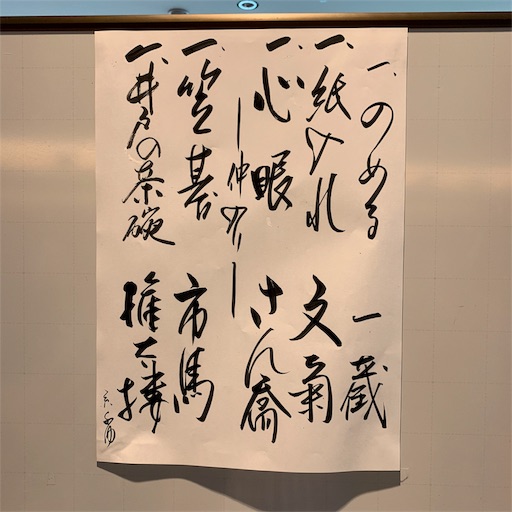 一、のめる 一蔵
一、紙入れ 文菊
一、心眼 さん喬
―仲入り―
一、笠碁 市馬
一、井戸の茶碗 権太楼